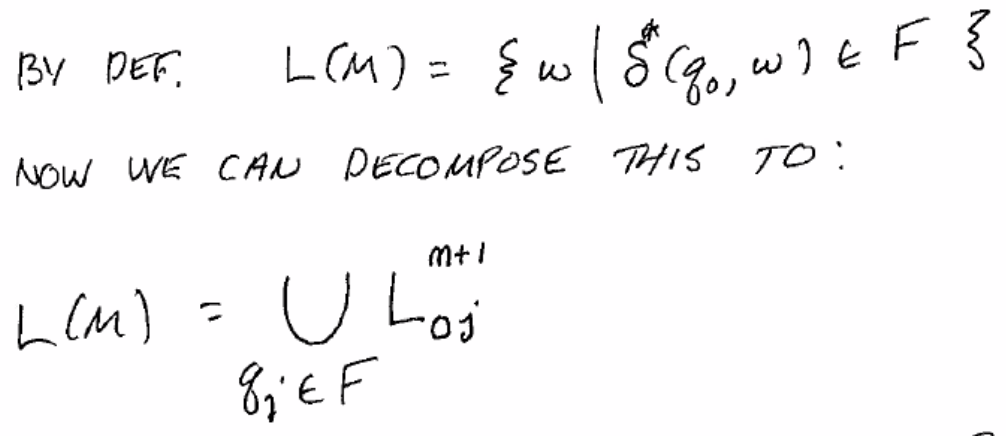 BY DEF. L(M) = { w | δ*(q₀, w) ∈ F }
NOW WE CAN DECOMPOSE THIS TO:
L(M) = ⋃ L₀ⱼ^{m+1}
qⱼ ∈ F